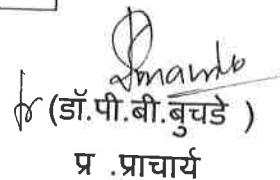 (डॉ.पी.बी.बुचडे )
प्र .प्राचार्य